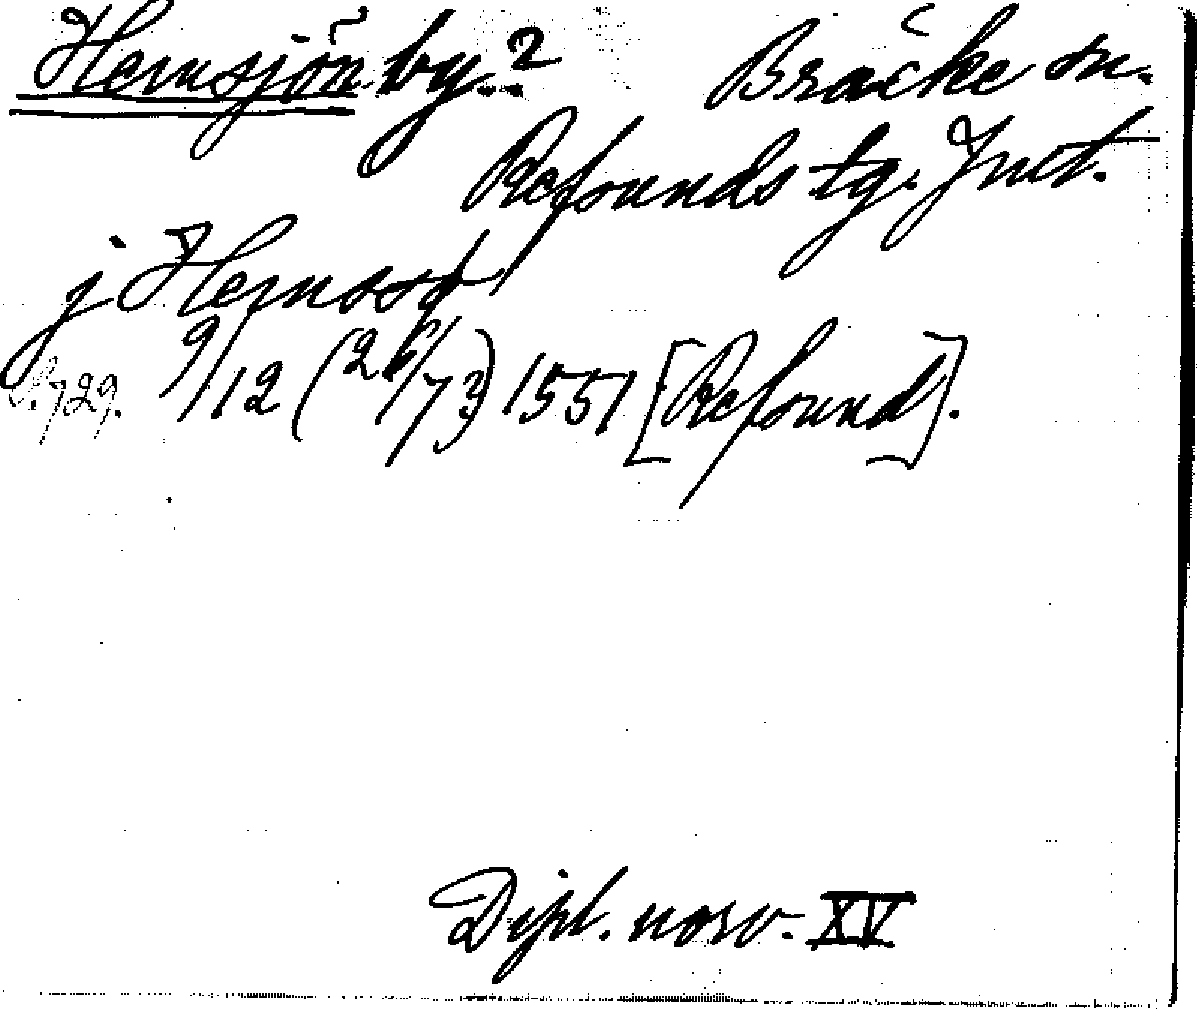 Hemsjön by.? Bräcke sn.
Refsunds tg. Jmt.
j Hemssø
s. 729. 9/12 (26/73) 1551 [Refsund].
Dipl. norv. XV